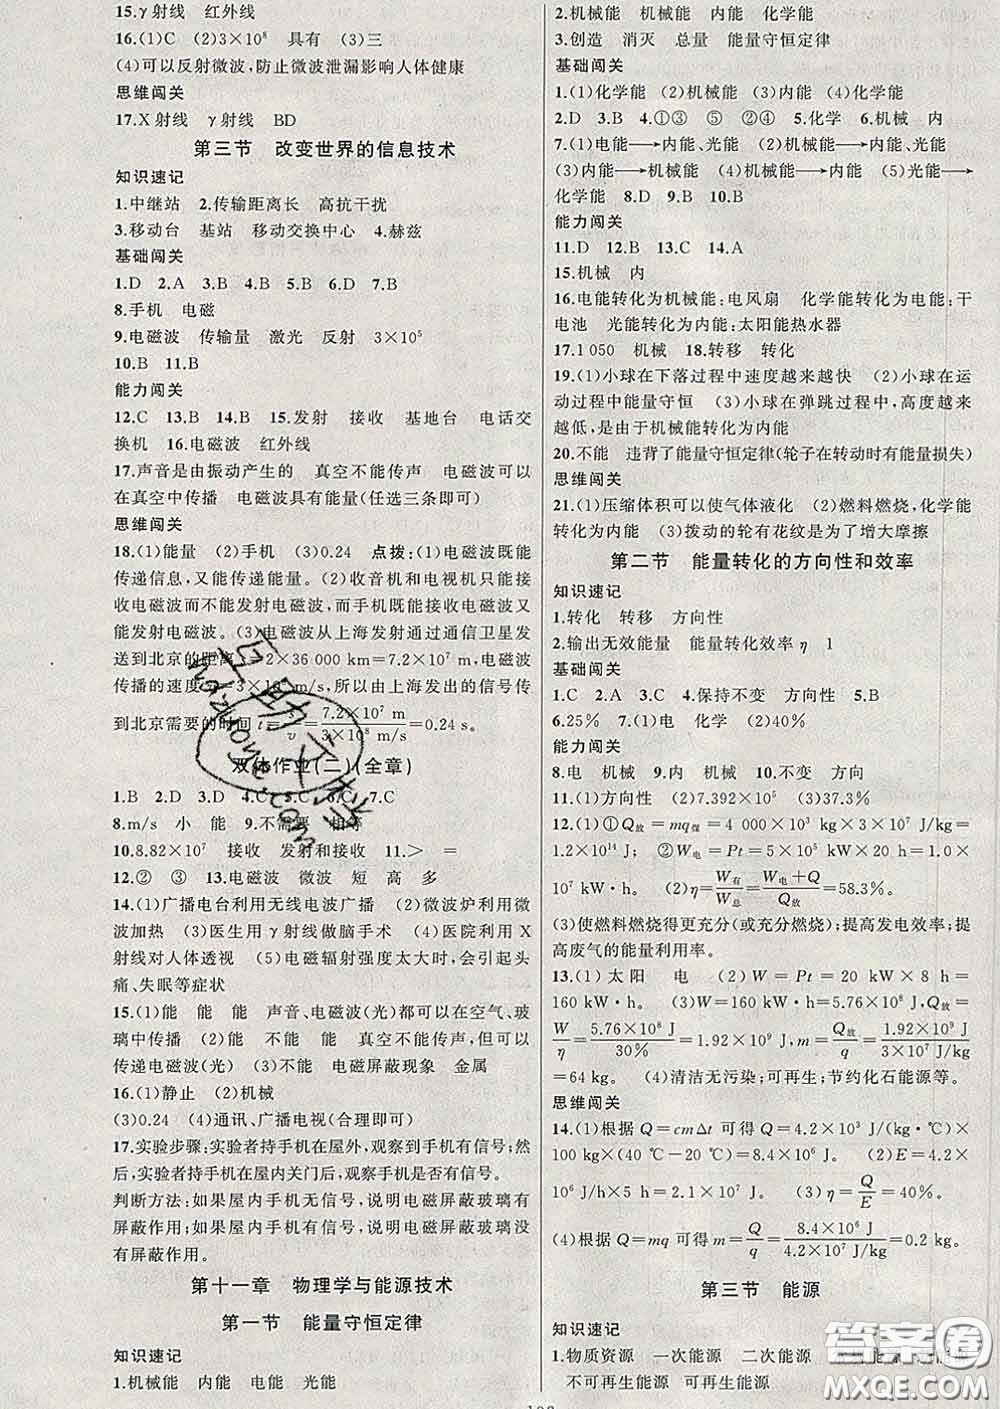 15.γ射线　红外线
16.(1)C　(2)3×10⁸　具有　(3)三
(4)可以反射微波,防止微波泄漏影响人体健康
思维闯关
17.X射线　γ射线　BD
第三节　改变世界的信息技术
知识速记
1.中继站　2.传输距离长　高抗干扰
3.移动台　基站　移动交换中心　4.赫兹
基础闯关
1.D　2.A　3.B　4.B　5.C　6.D　7.B
8.手机　电磁
9.电磁波　传输量　激光　反射　3×10⁵
10.B　11.B
能力闯关
12.C　13.B　14.B　15.发射　接收　基地台　电话交
换机　16.电磁波　红外线
17.声音是由振动产生的　真空不能传声　电磁波可以
在真空中传播　电磁波具有能量(任选三条即可)
思维闯关
18.(1)能量　(2)手机　(3)0.24　点拨:(1)电磁波既能
传递信息,又能传递能量。(2)收音机和电视机只能接
收电磁波而不能发射电磁波,而手机既能接收电磁波又
能发射电磁波。(3)电磁波从上海发射通过通信卫星发
送到北京的距离s=2×36 000 km=7.2×10⁷ m,电磁波
传播的速度v=3×10⁸ m/s,所以由上海发出的信号传
到北京需要的时间t=s/v=7.2×10⁷ m/3×10⁸ m/s=0.24 s。
双休作业(二)(全章)
1.B　2.D　3.D　4.C　5.C　6.C　7.C
8.m/s　小　能　9.不需要　相等
10.8.82×10⁷　接收　发射和接收　11.>　=
12.②　③　13.电磁波　微波　短　高　多
14.(1)广播电台利用无线电波广播　(2)微波炉利用微
波加热　(3)医生用γ射线做脑手术　(4)医院利用X
射线对人体透视　(5)电磁辐射强度太大时,会引起头
痛、失眠等症状
15.(1)能　能　能　声音、电磁波(光)都可以在空气、玻
璃中传播　(2)能　不能　能　真空不能传声,但可以
传递电磁波(光)　(3)不能　电磁屏蔽现象　金属
16.(1)静止　(2)机械
(3)0.24　(4)通讯、广播电视(合理即可)
17.实验步骤:实验者持手机在屋外,观察到手机有信号;然
后,实验者持手机在屋内关门后,观察手机是否有信号。
判断方法:如果屋内手机无信号,说明电磁屏蔽玻璃有
屏蔽作用;如果屋内手机有信号,说明电磁屏蔽玻璃没
有屏蔽作用。
第十一章　物理学与能源技术
第一节　能量守恒定律
知识速记
1.机械能　内能　电能　光能
2.机械能　机械能　内能　化学能
3.创造　消灭　总量　能量守恒定律
基础闯关
1.(1)化学能　(2)机械能　(3)内能　(4)化学能
2.D　3.B　4.①③　⑤　②④　5.化学　6.机械　内
7.(1)电能→内能、光能　(2)机械能→内能、光能
(3)内能→机械能　(4)机械能→内能　(5)光能→
化学能　8.D　9.B　10.B
能力闯关
11.D　12.B　13.C　14.A
15.机械　内
16.电能转化为机械能:电风扇　化学能转化为电能:干
电池　光能转化为内能:太阳能热水器
17.1 050　机械　18.转移　转化
19.(1)小球在下落过程中速度越来越快　(2)小球在运
动过程中能量守恒　(3)小球在弹跳过程中,高度越来
越低,是由于机械能转化为内能
20.不能　违背了能量守恒定律(轮子在转动时有能量损失)
思维闯关
21.(1)压缩体积可以使气体液化　(2)燃料燃烧,化学能
转化为内能　(3)拨动的轮有花纹是为了增大摩擦
第二节　能量转化的方向性和效率
知识速记
1.转化　转移　方向性
2.输出无效能量　能量转化效率η　1
基础闯关
1.C　2.A　3.C　4.保持不变　方向性　5.B
6.25%　7.(1)电　化学　(2)40%
能力闯关
8.电　机械　9.内　机械　10.不变　方向
11.(1)方向性　(2)7.392×10⁵　(3)37.3%
12.(1)①Q放=mq煤=4 000×10³ kg×3×10⁷ J/kg=
1.2×10¹⁴ J;　②W电=Pt=5×10⁵ kW×20 h=1.0×
10⁷ kW·h。　(2)η=W有/W总=W电+Q/Q放=58.3%。
(3)使燃料燃烧得更充分(或充分燃烧);提高发电效率;提
高废气的能量利用率。
13.(1)太阳　电　(2)W=Pt=20 kW×8 h=
160 kW·h。　(3)W=160 kW·h=5.76×10⁸ J,Q放=
W/η=5.76×10⁸ J/30%=1.92×10⁹ J,m=Q放/q=1.92×10⁹ J/3×10⁷ J/kg
=64 kg。　(4)清洁无污染;可再生;节约化石能源等。
思维闯关
14.(1)根据Q=cmΔt可得Q=4.2×10³ J/(kg·℃)×
100 kg×(40℃-20℃)=8.4×10⁶ J。　(2)E=4.2×
10⁶ J/h×5 h=2.1×10⁷ J。　(3)η=Q/E=40%。
(4)根据Q=mq可得m=Q/q=8.4×10⁶ J/4.2×10⁷ J/kg=0.2 kg。
第三节　能源
知识速记
1.物质资源　一次能源　二次能源
不可再生能源　可再生能源
互助文档
hdzhone.com
答案圈
MXQE.COM